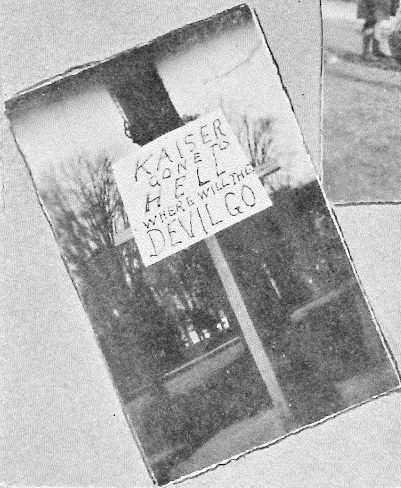 KAISER
GONE TO
HELL
WHERE WILL THE
DEVIL GO